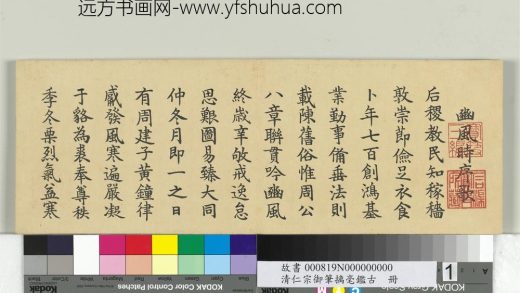 远方书画网-www.yfshuhua.com
豳風時序歌
后稷教民知稼穡
敦崇節儉足衣食
卜年七百創鴻基
業勤事備垂法則
載陳舊俗惟周公
八章聯貫吟豳風
終歲辛敂戒逸怠
思艱圖易臻大同
仲冬月即一之日
有周建子黃鐘律
觱發風寒邇嚴凝
于貉為裘奉尊秩
季冬栗烈氣益寒
故書 000819N000000000
清仁宗御筆摛毫鑑古 冊
1
KODAK Color Control Patches
KODAK Gray Scale